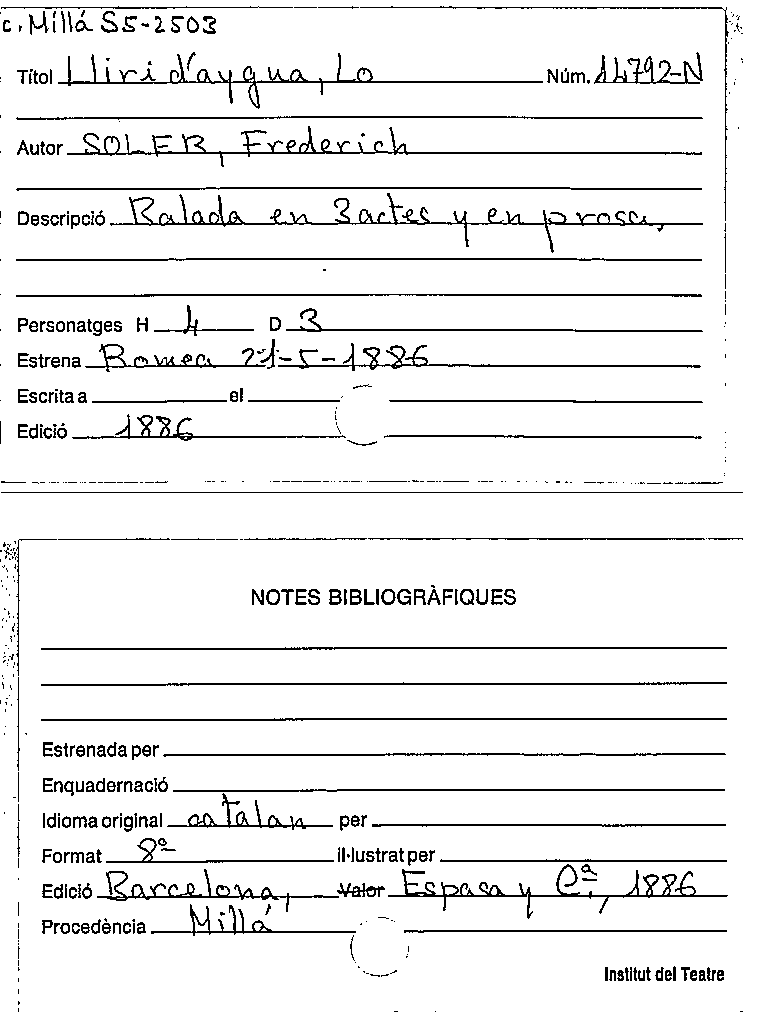 c. Millá S5-2503
Títol Lliri d'aygua, Lo Núm. 14792-N
Autor SOLER, Frederich
Descripció Balada en 3 actes y en prosa.
Personatges H 4 D 3
Estrena Romea 21-5-1886
Escrita a el
Edició 1886
NOTES BIBLIOGRÀFIQUES
Estrenada per
Enquadernació
Idioma original catalan per
Format 8º
il·lustrat per
Edició Barcelona, Valor Espasa y Cª, 1886
Procedència Millá
Institut del Teatre